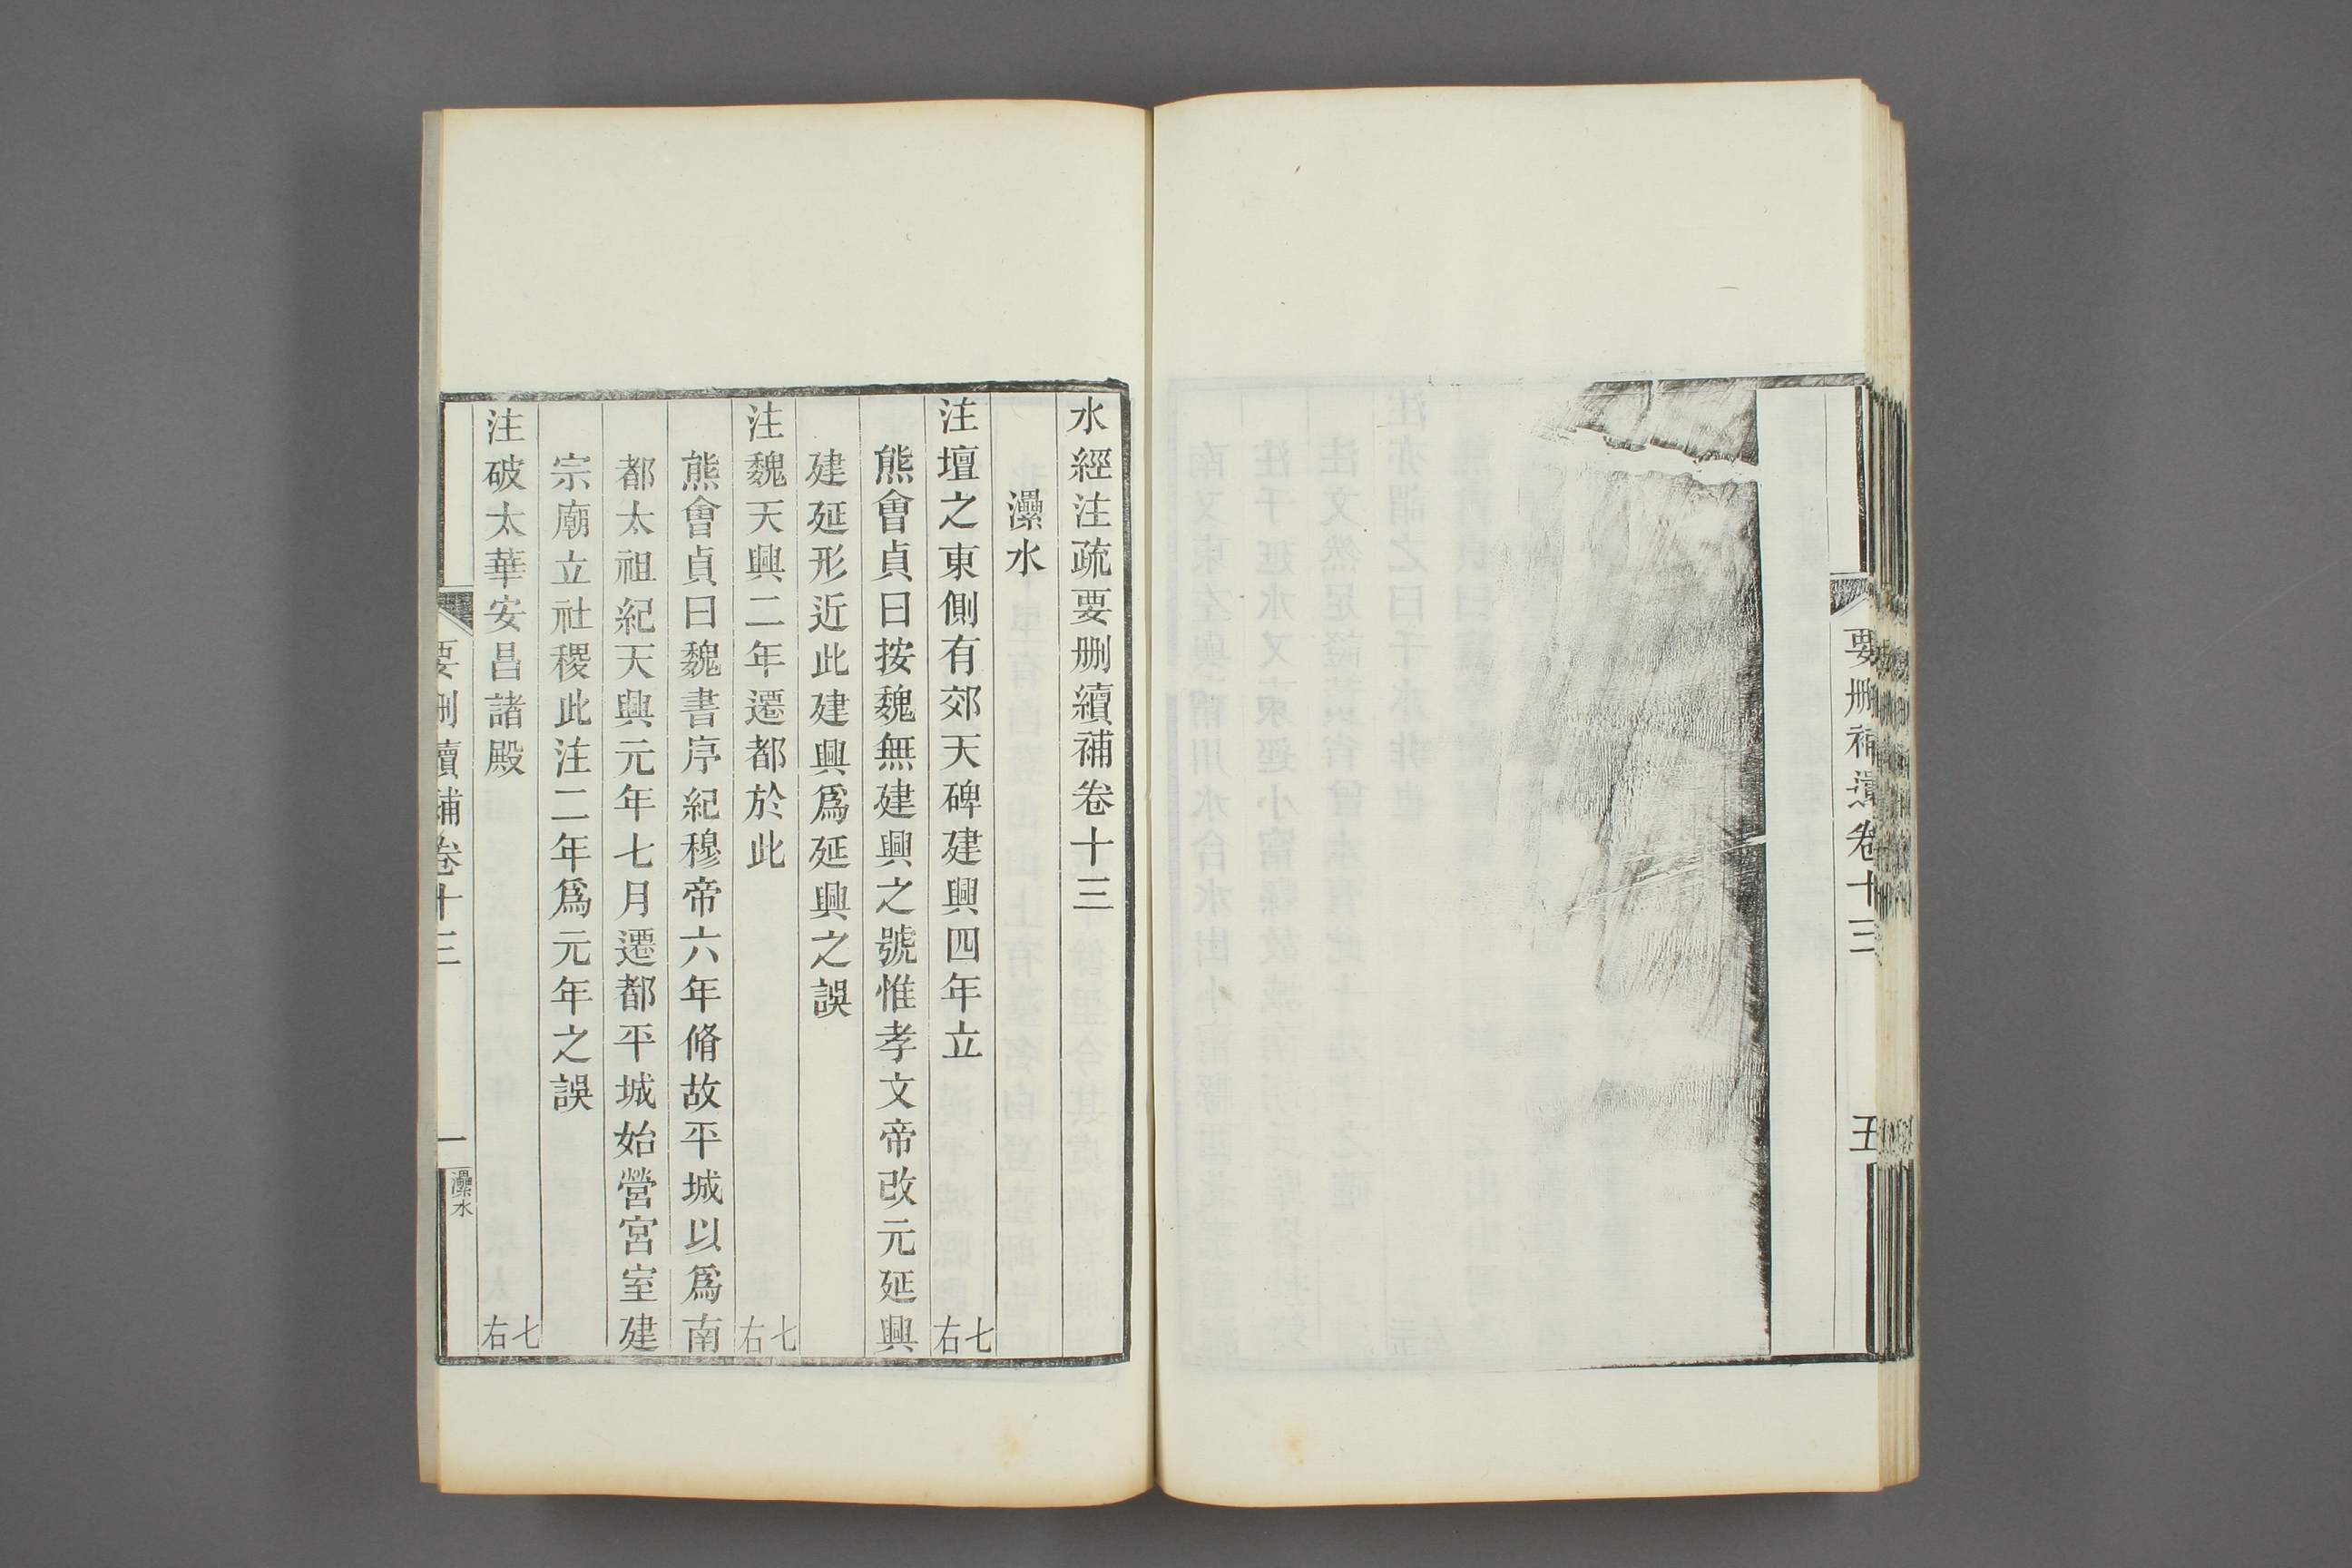 要删補遺卷十三
五
水經注疏要删續補卷十三
灅水
注壇之東側有郊天碑建興四年立 七右
熊會貞曰按魏無建興之號惟孝文帝改元延興
建延形近此建興爲延興之誤
注魏天興二年遷都於此 七右
熊會貞曰魏書序紀穆帝六年脩故平城以爲南
都太祖紀天興元年七月遷都平城始營宮室建
宗廟立社稷此注二年爲元年之誤
注破太華安昌諸殿 七右
要删續補卷十三
一
灅水